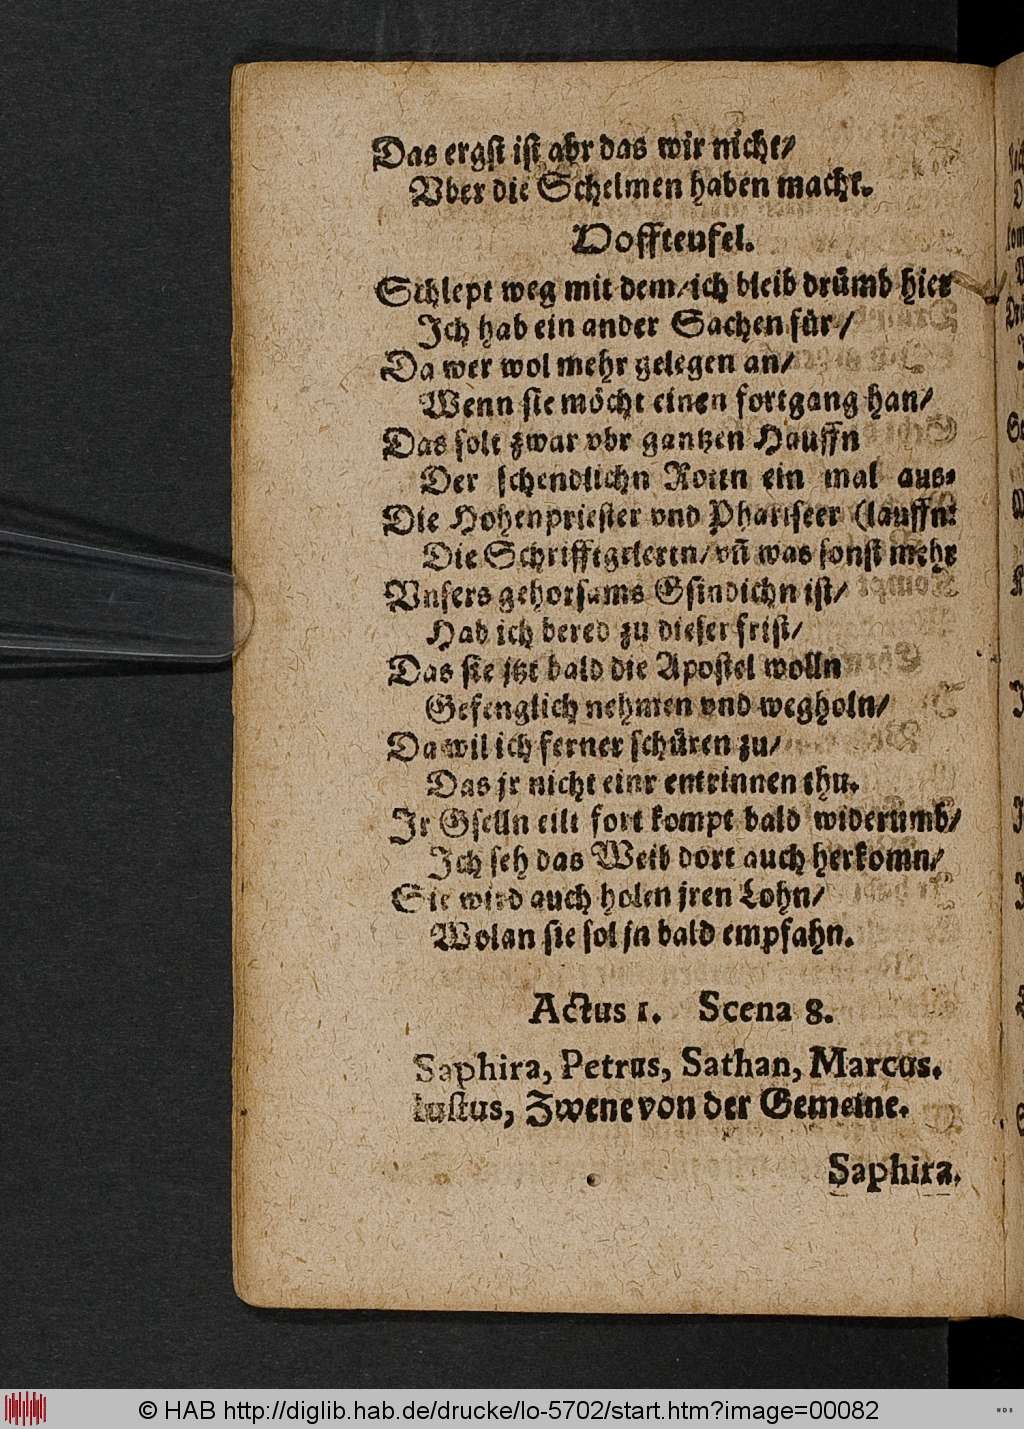 Das ergst ist abr das wir nicht/
Vber die Schelmen haben macht.
Hoffteufel.
Schlept weg mit dem/ich bleib drümb hier
Ich hab ein ander Sachen für/
Da wer wol mehr gelegen an/
Wenn sie möcht einen fortgang han/
Das solt zwar vbr gantzen Hauffn
Der schendlichn Rottn ein mal aus-
Die Hohenpriester vnd Phariseer (lauffn:
Die Schrifftgelertn/vñ was sonst mehr
Vnsers gehorsams Gsindichn ist/
Hab ich bered zu dieser frist/
Das sie jtzt bald die Apostel wolln
Gefenglich nehmen vnd wegholn/
Da wil ich ferner schüren zu/
Das jr nicht einr entrinnen thu.
Ir Gselln eilt fort kompt bald widerumb/
Ich seh das Weib dort auch herkomn/
Sie wird auch holen jren Lohn/
Wolan sie sol jn bald empfahn.
Actus 1. Scena 8.
Saphira, Petrus, Sathan, Marcus.
Iustus, Zwene von der Gemeine.
Saphira.
© HAB http://diglib.hab.de/drucke/lo-5702/start.htm?image=00082